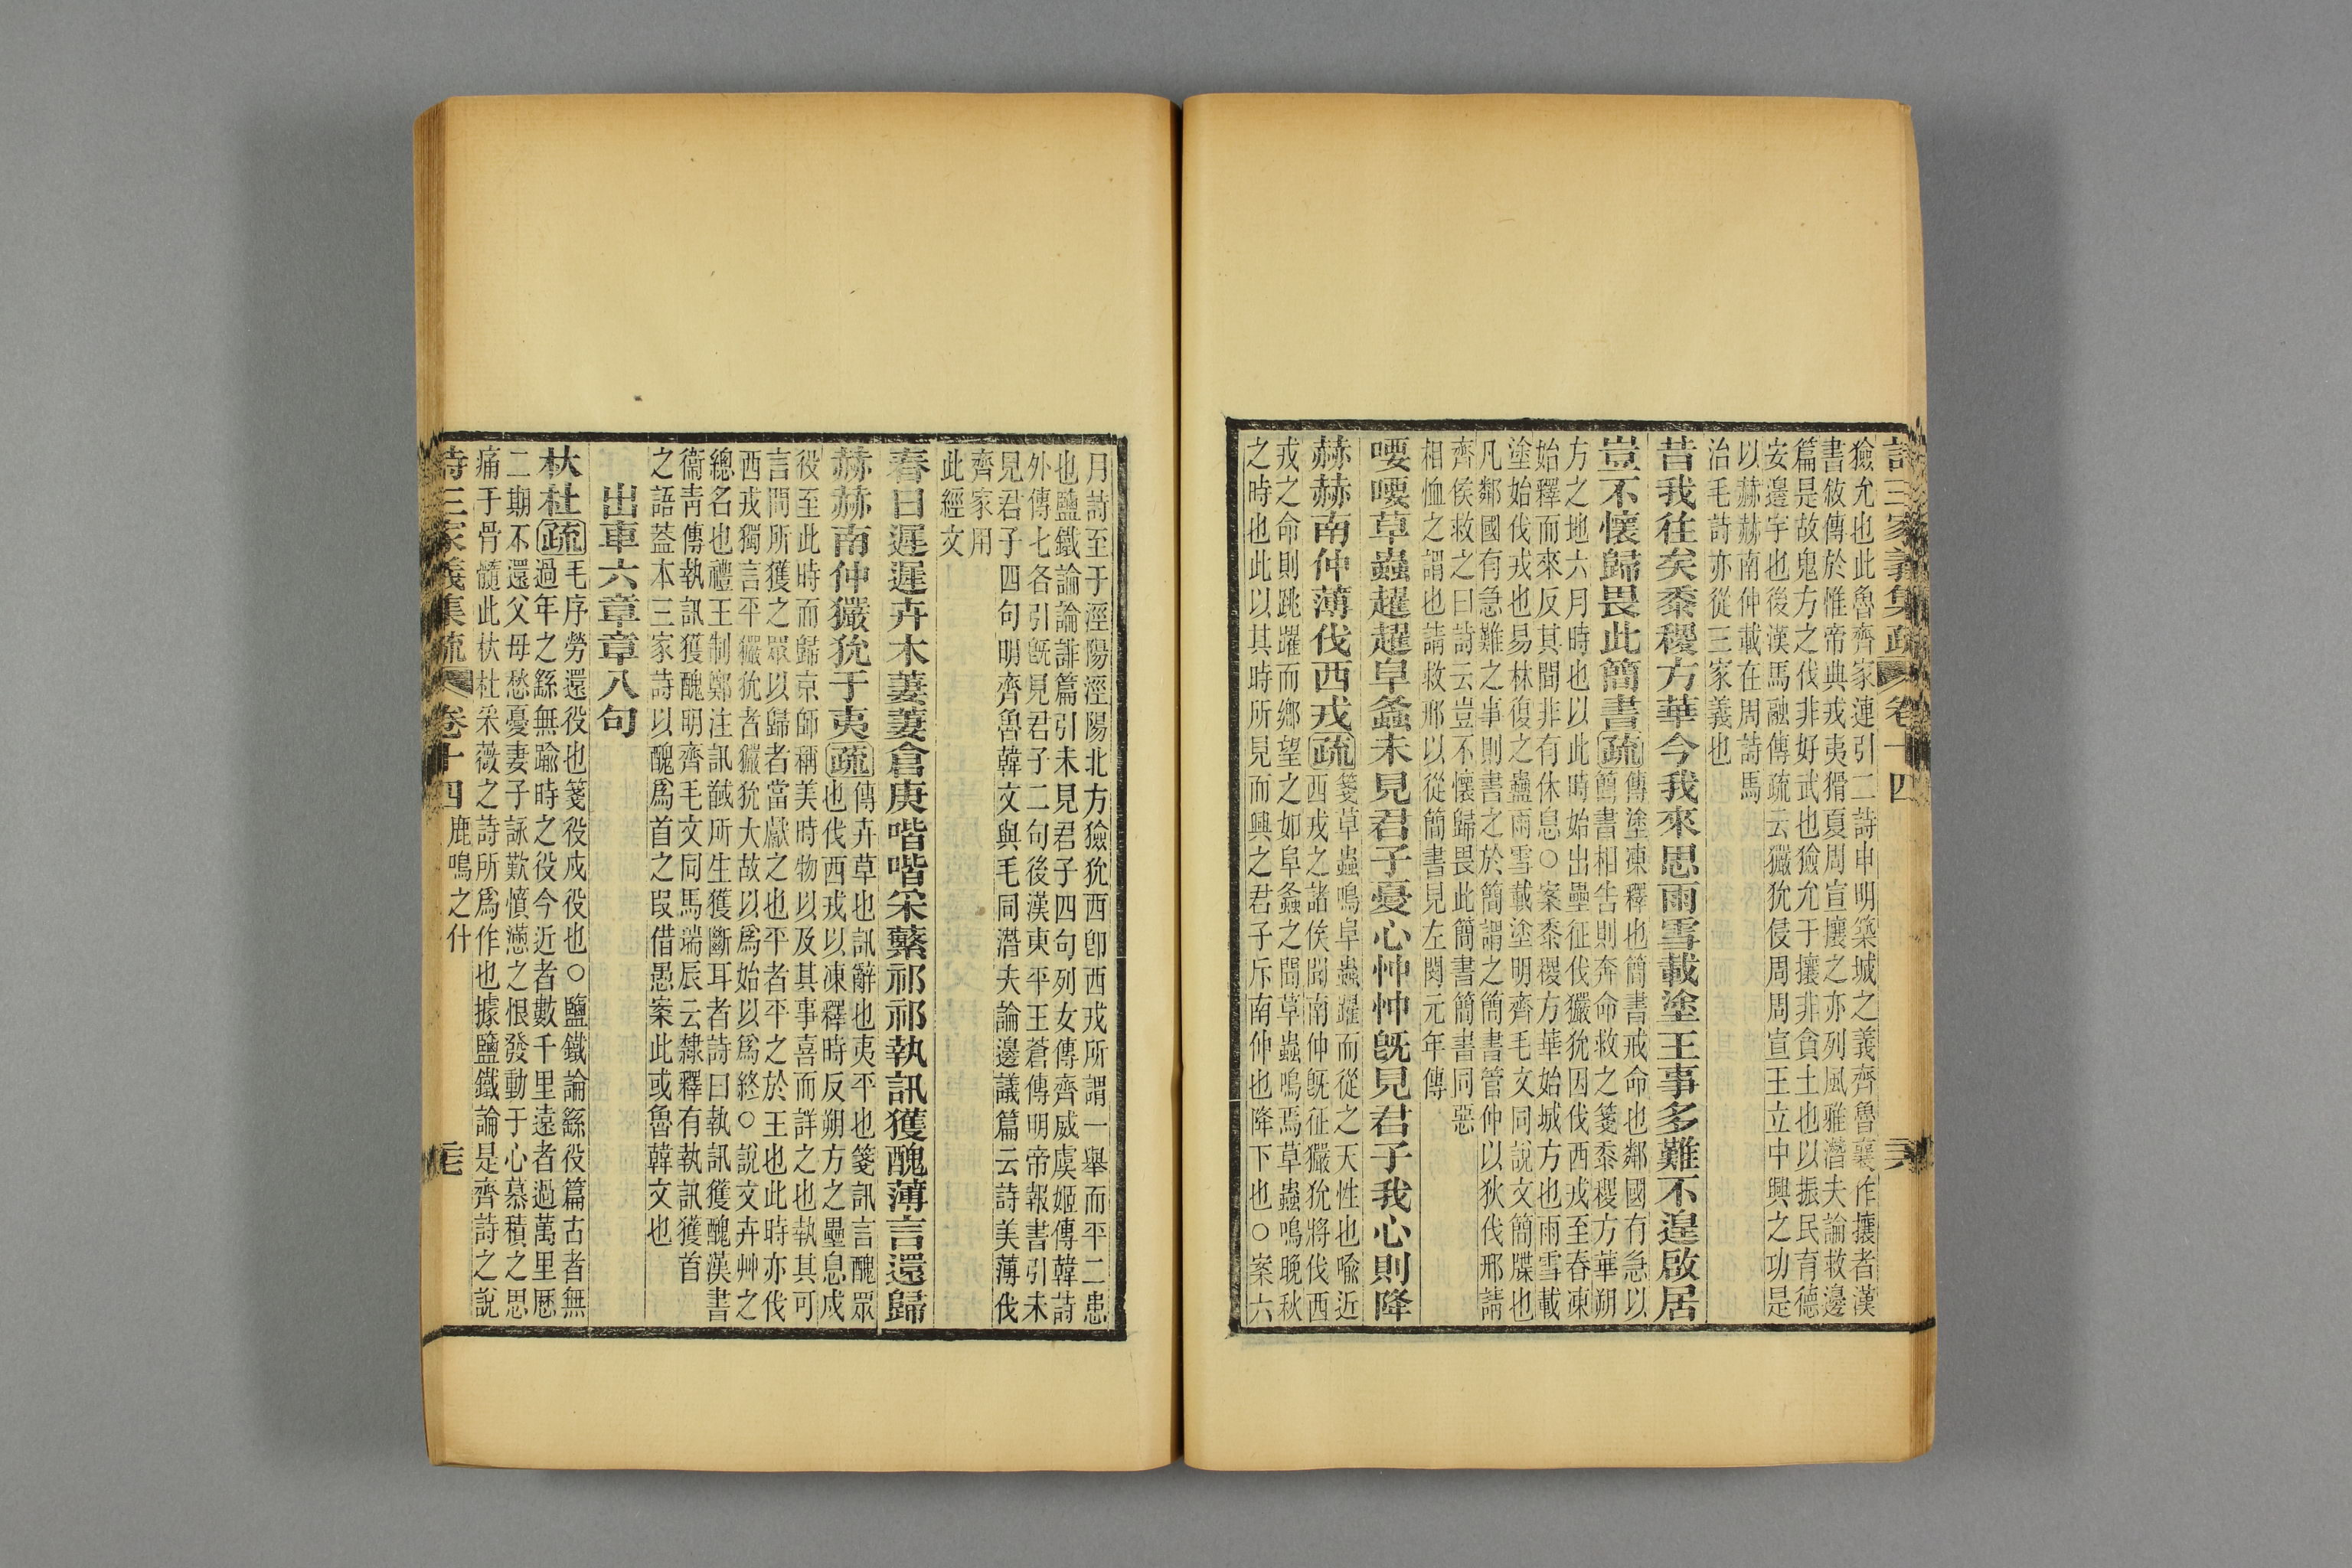 詩三家義集疏 卷十四 
獫允也此魯齊家連引二詩申明築城之義齊魯襄作攘者漢
書敘傳於惟帝典戎夷猾夏周宣攘之亦列風雅潛夫論救邊
篇是故鬼方之伐非好武也獫允于攘非貪土也以振民育德
安邊宇也後漢馬融傳疏云玁狁侵周周宣王立中興之功是
以赫赫南仲載在周詩馬
治毛詩亦從三家義也
昔我往矣黍稷方華今我來思雨雪載塗王事多難不遑啟居
豈不懷歸畏此簡書疏傳塗凍釋也簡書戒命也鄰國有急以
簡書相告則奔命救之箋黍稷方華朔
方之地六月時也以此時始出壘征伐玁狁因伐西戎至春凍
始釋而來反其間非有休息○案黍稷方華始城方也雨雪載
塗始伐戎也易林復之蠱雨雪載塗明齊毛文同說文簡牒也
凡鄰國有急難之事則書之於簡謂之簡書管仲以狄伐邢請
齊侯救之曰詩云豈不懷歸畏此簡書簡書同惡
相恤之謂也請救邢以從簡書見左閔元年傳
喓喓草蟲趯趯阜螽未見君子憂心忡忡旣見君子我心則降
赫赫南仲薄伐西戎疏箋草蟲鳴阜螽躍而從之天性也喻近
西戎之諸侯聞南仲旣征玁狁將伐西
戎之命則跳躍而鄉望之如阜螽之聞草蟲鳴焉草蟲鳴晚秋
之時也此以其時所見而興之君子斥南仲也降下也○案六
月詩至于涇陽涇陽北方獫狁西卽西戎所謂一舉而平二患
也鹽鐵論論誹篇引未見君子四句列女傳齊威虞姬傳韓詩
外傳七各引旣見君子二句後漢東平王蒼傳明帝報書引未
見君子四句明齊魯韓文與毛同潛夫論邊議篇云詩美薄伐
齊家用
此經文
春日遲遲卉木萋萋倉庚喈喈采蘩祁祁執訊獲醜薄言還歸
赫赫南仲玁狁于夷疏傳卉草也訊辭也夷平也箋訊言醜眾
也伐西戎以凍釋時反朔方之壘息戍
役至此時而歸京師稱美時物以及其事喜而詳之也執其可
言問所獲之眾以歸者當獻之也平者平之於王也此時亦伐
西戎獨言平玁狁者玁狁大故以爲始以爲終○說文卉艸之
總名也禮王制鄭注訊馘所生獲斷耳者詩曰執訊獲醜漢書
衞青傳執訊獲醜明齊毛文同馬瑞辰云隸釋有執訊獲首
之語蓋本三家詩以醜爲首之叚借愚案此或魯韓文也
出車六章章八句
杕杜疏毛序勞還役也箋役戍役也○鹽鐵論繇役篇古者無
過年之繇無踰時之役今近者數千里遠者過萬里歷
二期不還父母愁憂妻子詠歎憤懣之恨發動于心慕積之思
痛于骨髓此杕杜采薇之詩所爲作也據鹽鐵論是齊詩之說
詩三家義集疏 卷十四 鹿鳴之什